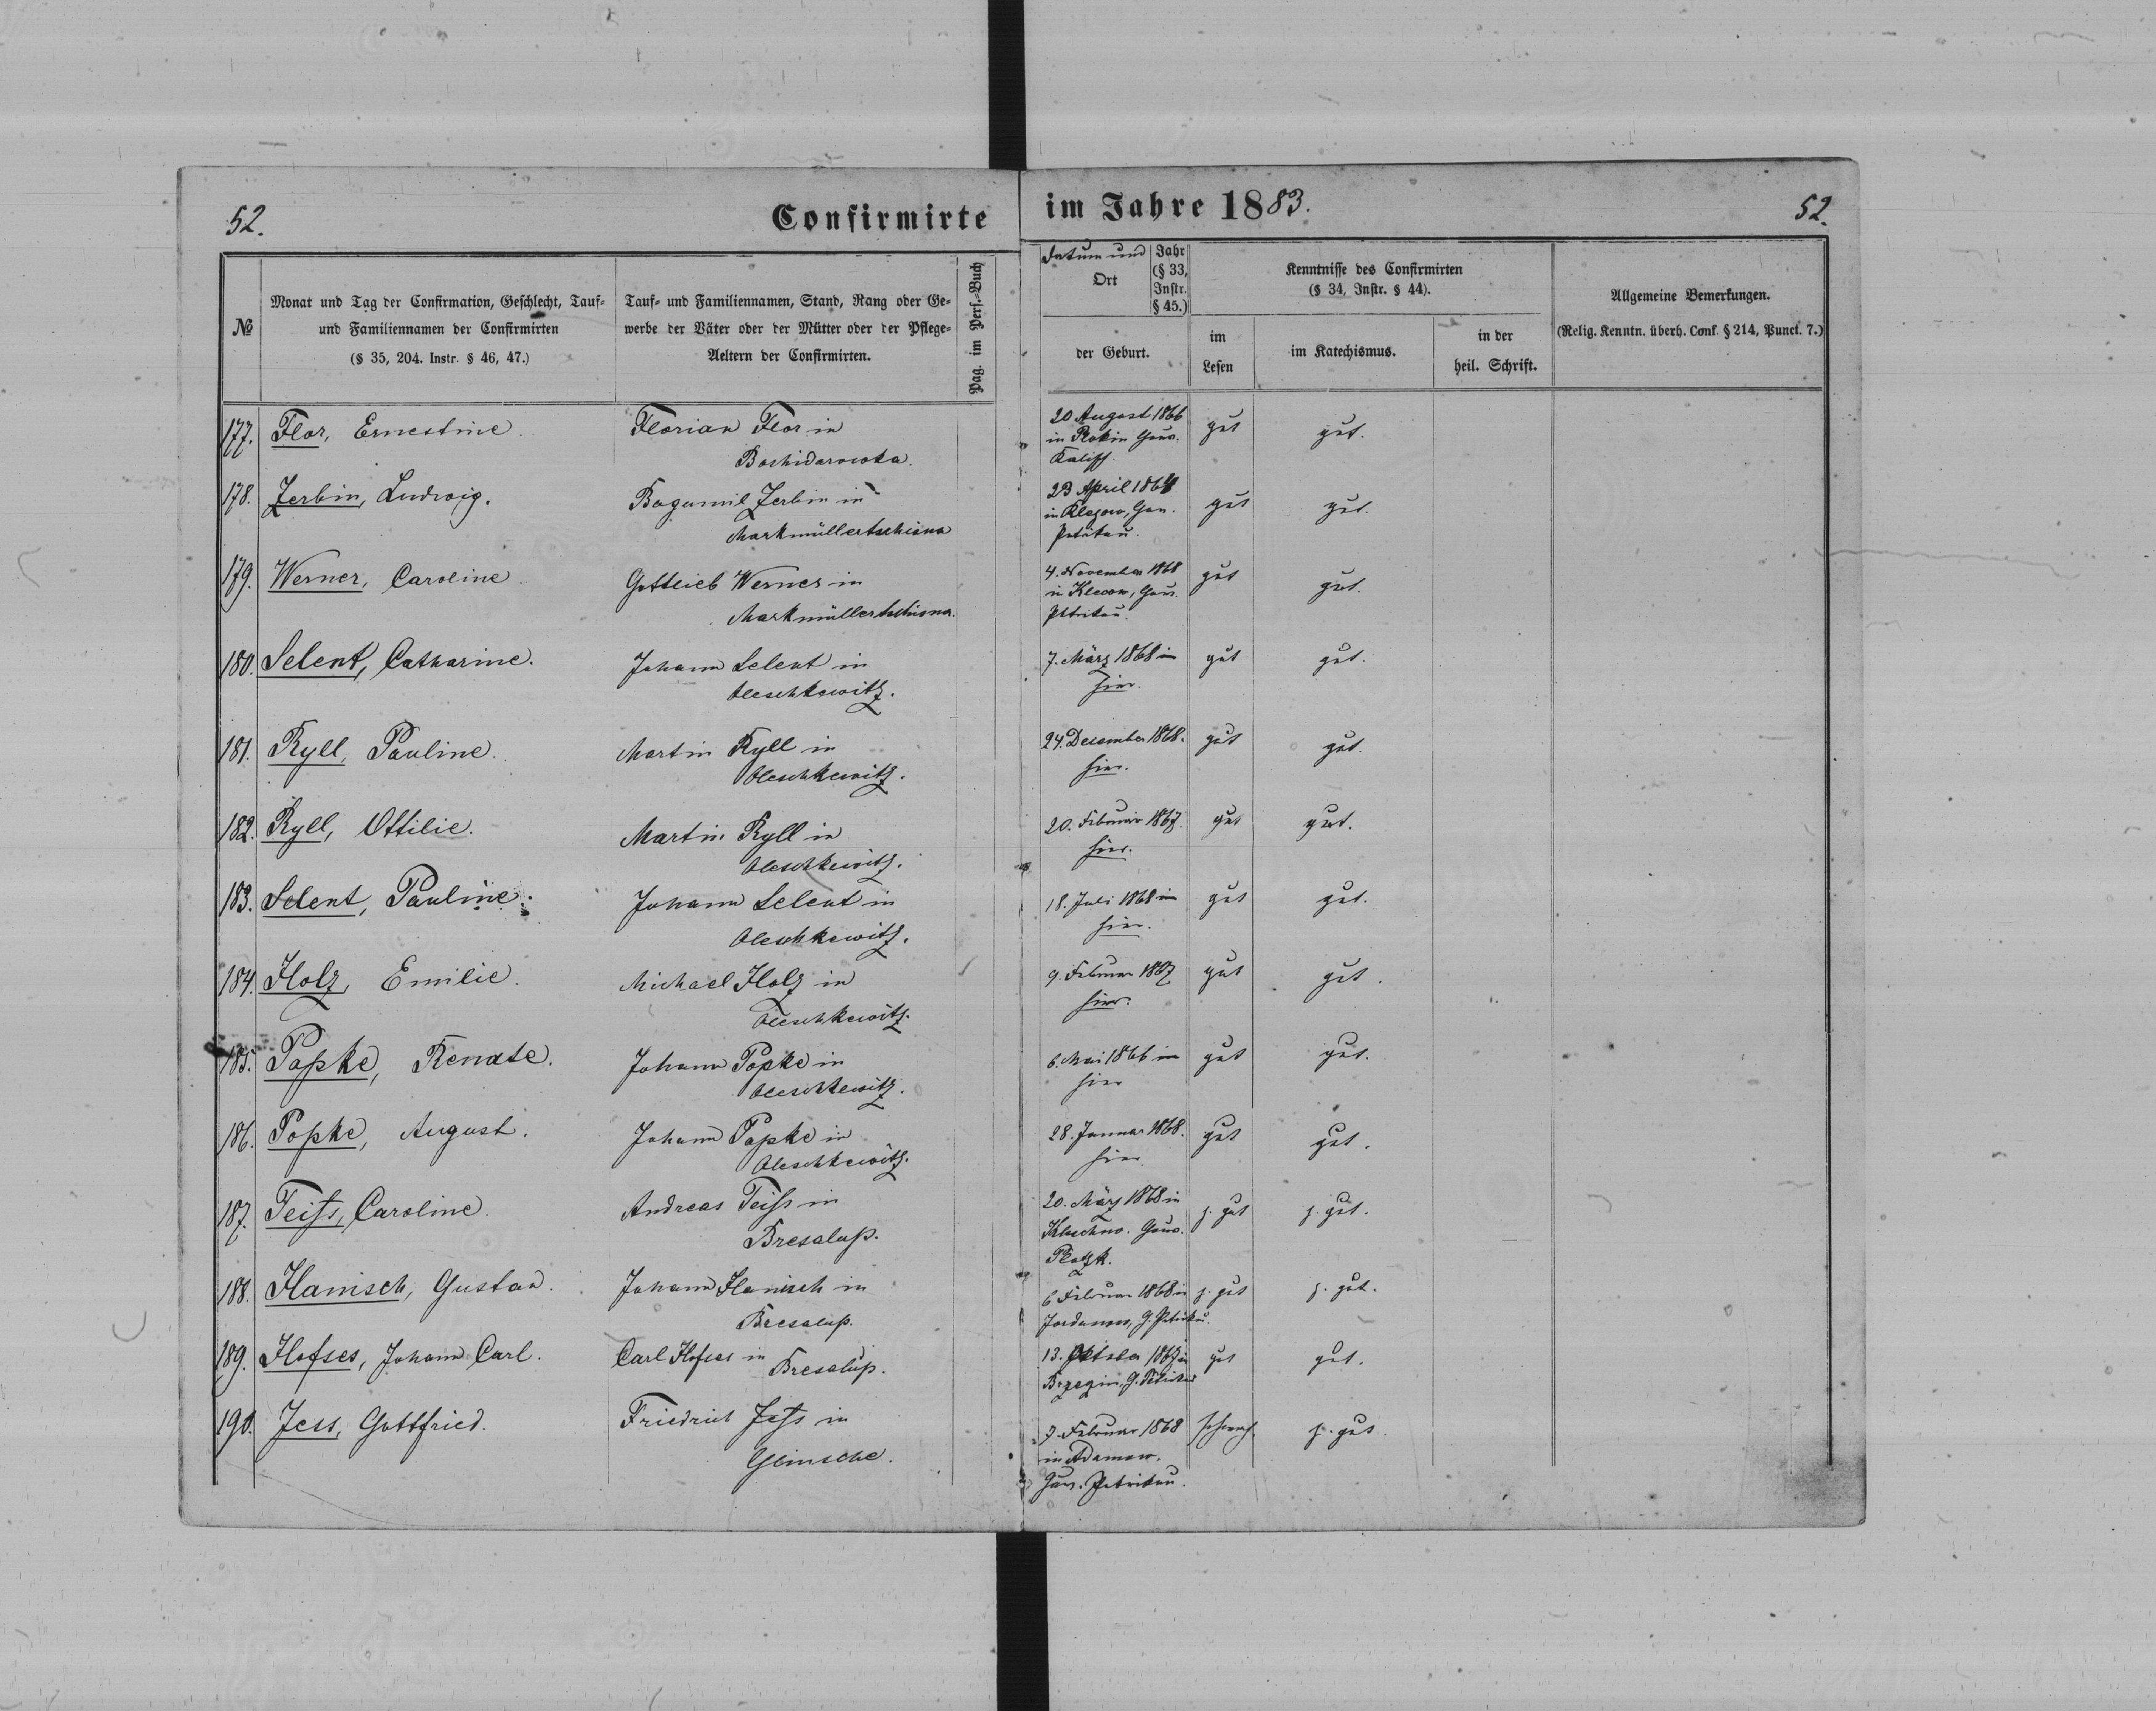 52.
Confirmirte
im Jahre 1883.
52.
№
Monat und Tag der Confirmation, Geschlecht, Tauf-
und Familiennamen der Confirmirten
(§ 35, 204. Instr. § 46, 47.)
Tauf- und Familiennamen, Stand, Rang oder Ge-
werbe der Väter oder der Mütter oder der Pflege-
Aeltern der Confirmirten.
Pag. im Pers.-Buch
Datum und
Ort
Jahr
(§ 33,
Instr.
§ 45.)
der Geburt.
Kenntnisse des Confirmirten
(§ 34, Instr. § 44).
im
Lesen
im Katechismus.
in der
heil. Schrift.
Allgemeine Bemerkungen.
(Relig. Kenntn. überh. Conf. § 214, Punct. 7.)
177. Flor, Ernestine.
Florian Flor in
Boshidarowka.
20 August 1866
in Gouv.
Kalisch.
gut
gut.
178. Zerbin, Ludwig.
Bogumil Zerbin in
Markmüllertschisna
23 April 1864
in Gou.
Petrikau.
gut
gut.
179. Werner, Caroline.
Gottlieb Werner in
Markmüllertschisna.
4. November 1868
in Gouv.
Petrikau.
gut
gut.
180. Selent, Catharine.
Johann Selent in
Oleschkewitz.
7. März 1868 in
hier.
gut
gut.
181. Ryll, Pauline.
Martin Ryll in
Oleschkewitz.
24. Desember 1868.
hier.
gut
gut.
182. Ryll, Ottilie.
Martin Ryll in
Oleschkewitz.
20. Februar 1867.
hier.
gut
gut.
183. Selent, Pauline.
Johann Selent in
Oleschkewitz.
18. Juli 1868 in
hier.
gut
gut.
184. Holz, Emilie.
Michael Holz in
Oleschkewitz.
9. Februar 1867
hier.
gut
gut.
185. Papke, Renate.
Johann Papke in
Oleschkewitz.
6. Mai 1866 in
hier
gut
gut.
186. Popke, August.
Johann Papke in
Oleschkewitz.
28. Januar 1868.
hier
gut
gut.
187. Teiss, Caroline.
Andreas Teiss in
Bresalup.
20. März 1868 in
Gouv.
Plotzk.
z. gut
z. gut.
188. Hanisch, Gustav.
Johann Hanisch in
Bresalup.
6 Februar 1868 in
G. Petrikau.
z. gut
z. gut.
189. Hofses, Johann Carl.
Carl Hofses in
Bresalup.
13. Oktober 1867 in
Brzezin, G. Petrikau
gut
gut.
190. Jess, Gottfried.
Friedrich Jess in
Glinsche.
9. Februar 1868
in Adamow,
Gouv. Petrikau.
schwach.
z. gut.